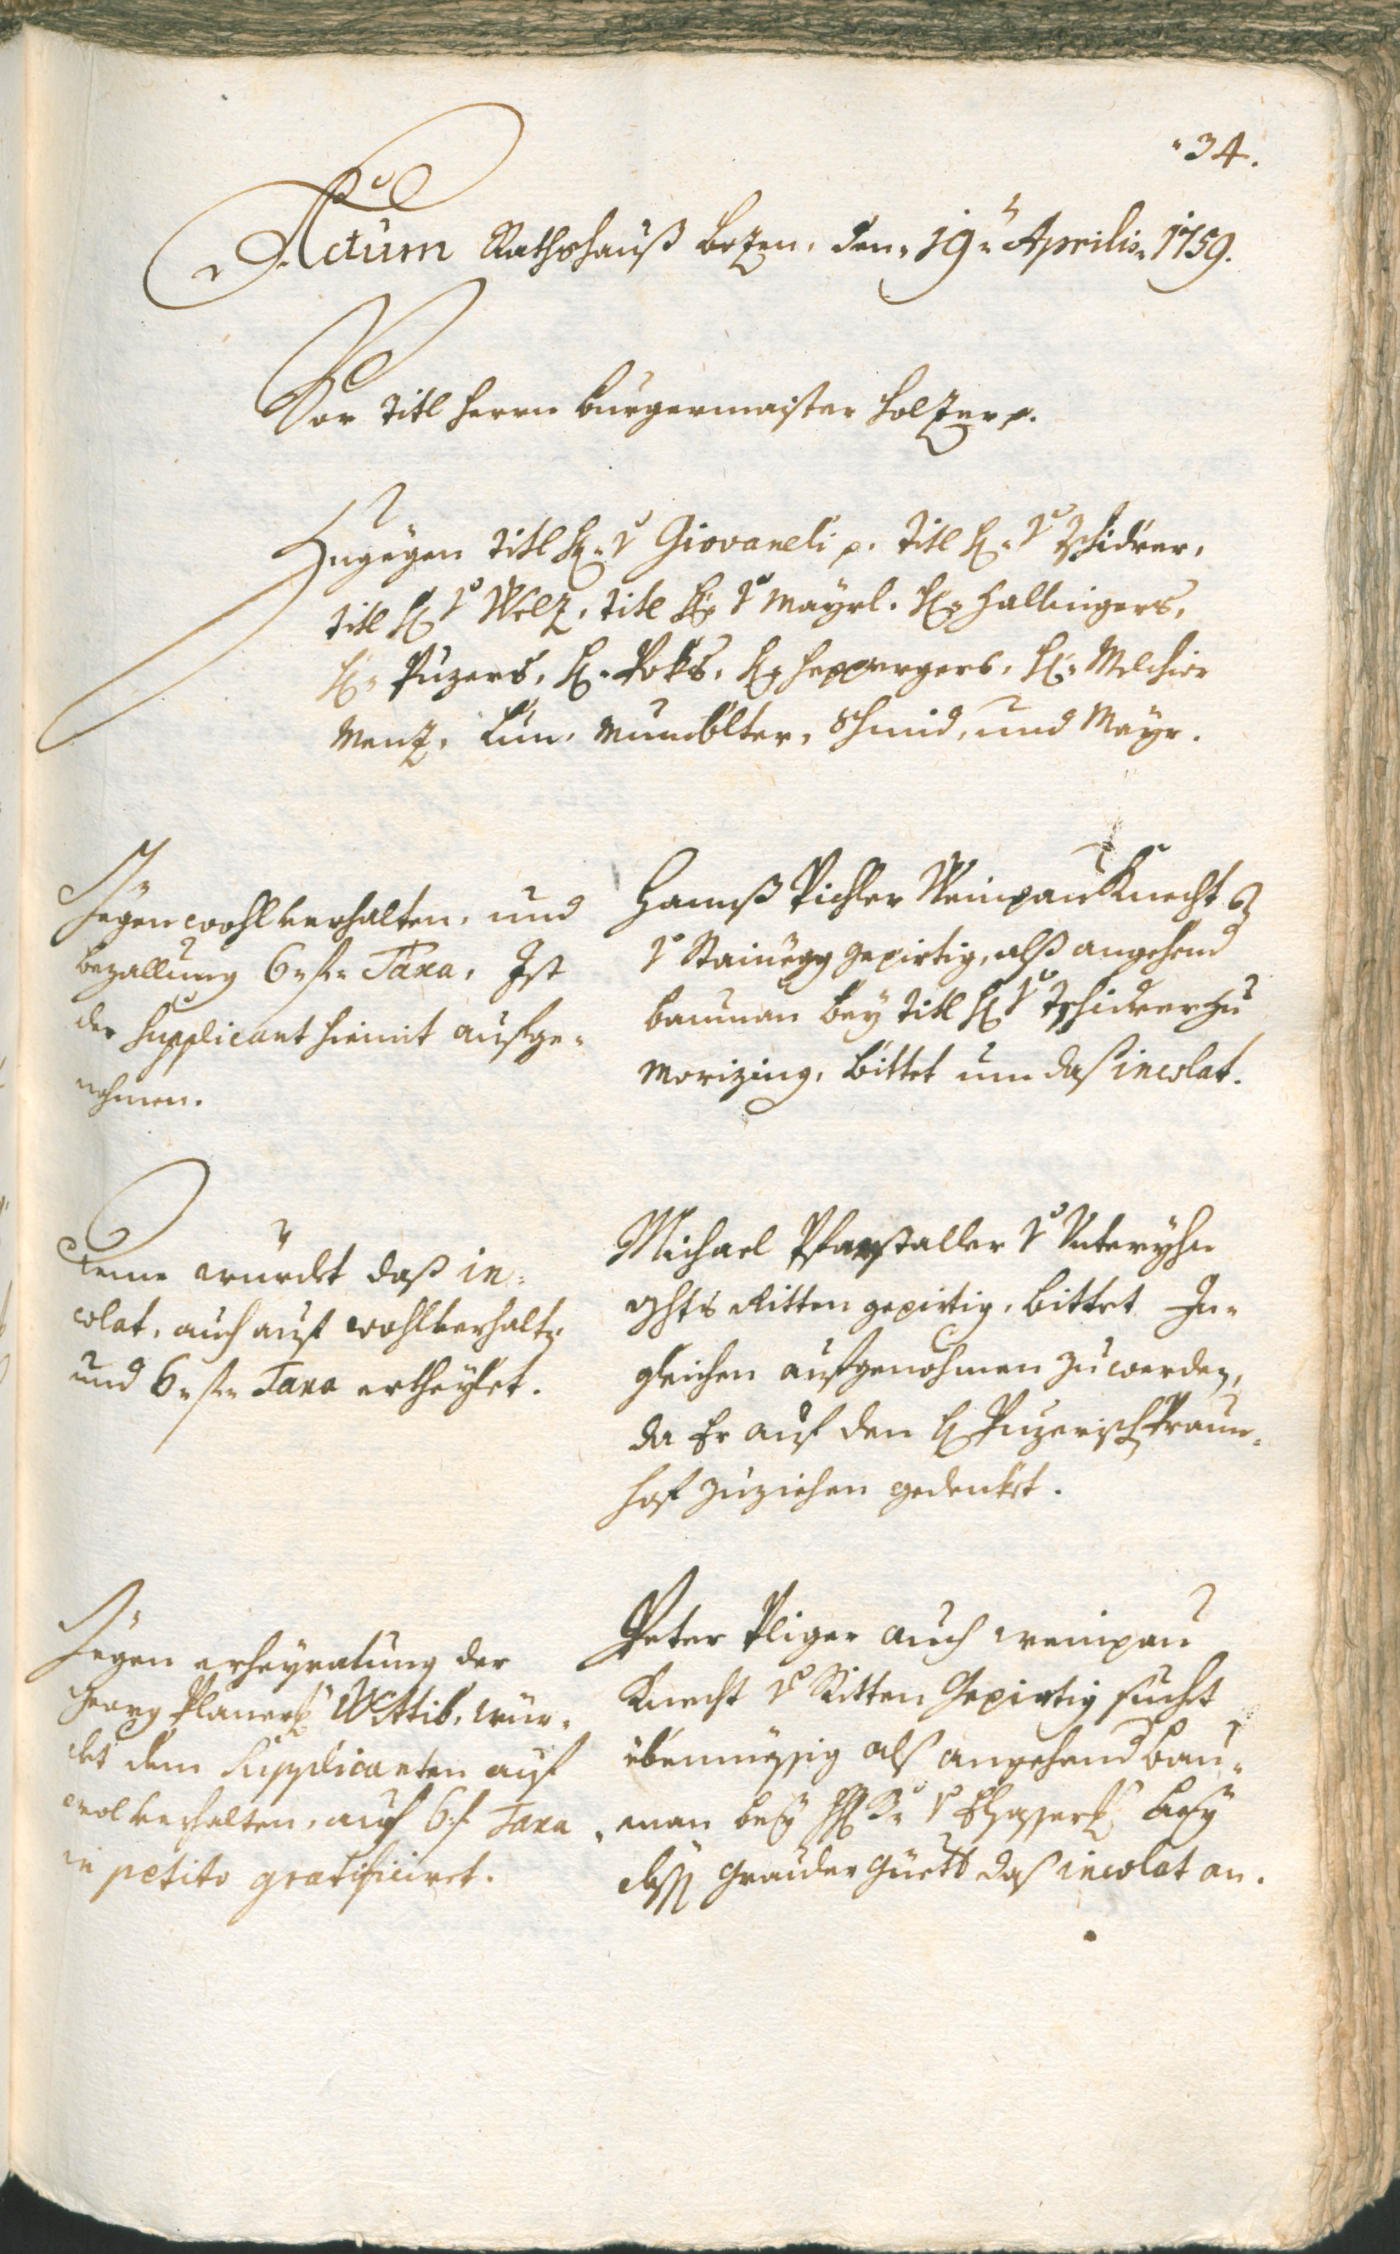 34.
Actum Rathshauß Bozen, den 19ten Aprilis 1759.
Vor Titl Herrn Burgermaister Holzer p.
Zugegen Titl H: v Giovaneli p. Titl H: v Tschidrer,
Titl H v Welz, Titl H: v Mayrl. H: Hallingers,
H: Puzers, H: Poks, H: Heppergers, H: Melchior
Menz, Lun, Mumblter, Schmid, und Mayr.
Hannß Pichler Weinpau Knecht
v Stainegg gepirtig, alß angehend
bauman bey Titl H v Tschidrer zu
Morizing, bittet um daß incolat.
Gegen wohlverhalten, und
bezallung 6 f Taxa, Ist
der Supplicant hiemit aufge-
nohmen.
Michael Pfarstaller v Unteryhn
Ghts Ritten gepirtig, bittet In-
gleichen aufgenohmen zu werden,
da Er auf den H Puzerisch Praun-
hof zuziehen gedenkt.
Deme würdet daß in-
colat, auch auf wohlverhalt
und 6 f Taxa ertheylet.
Peter Pliger auch weinpau
Knecht v Ritten Gepirtig sucht
ebenmessig alß angehend bau-
man bey H v Elzasser bey
dess Grauder Guett daß incolat an.
Gegen erheyratung der
Georg Planers Wittib, wür-
det dem Supplicanten auf
wolverhalten, auch 6 f Taxa
in petito gratificirt.